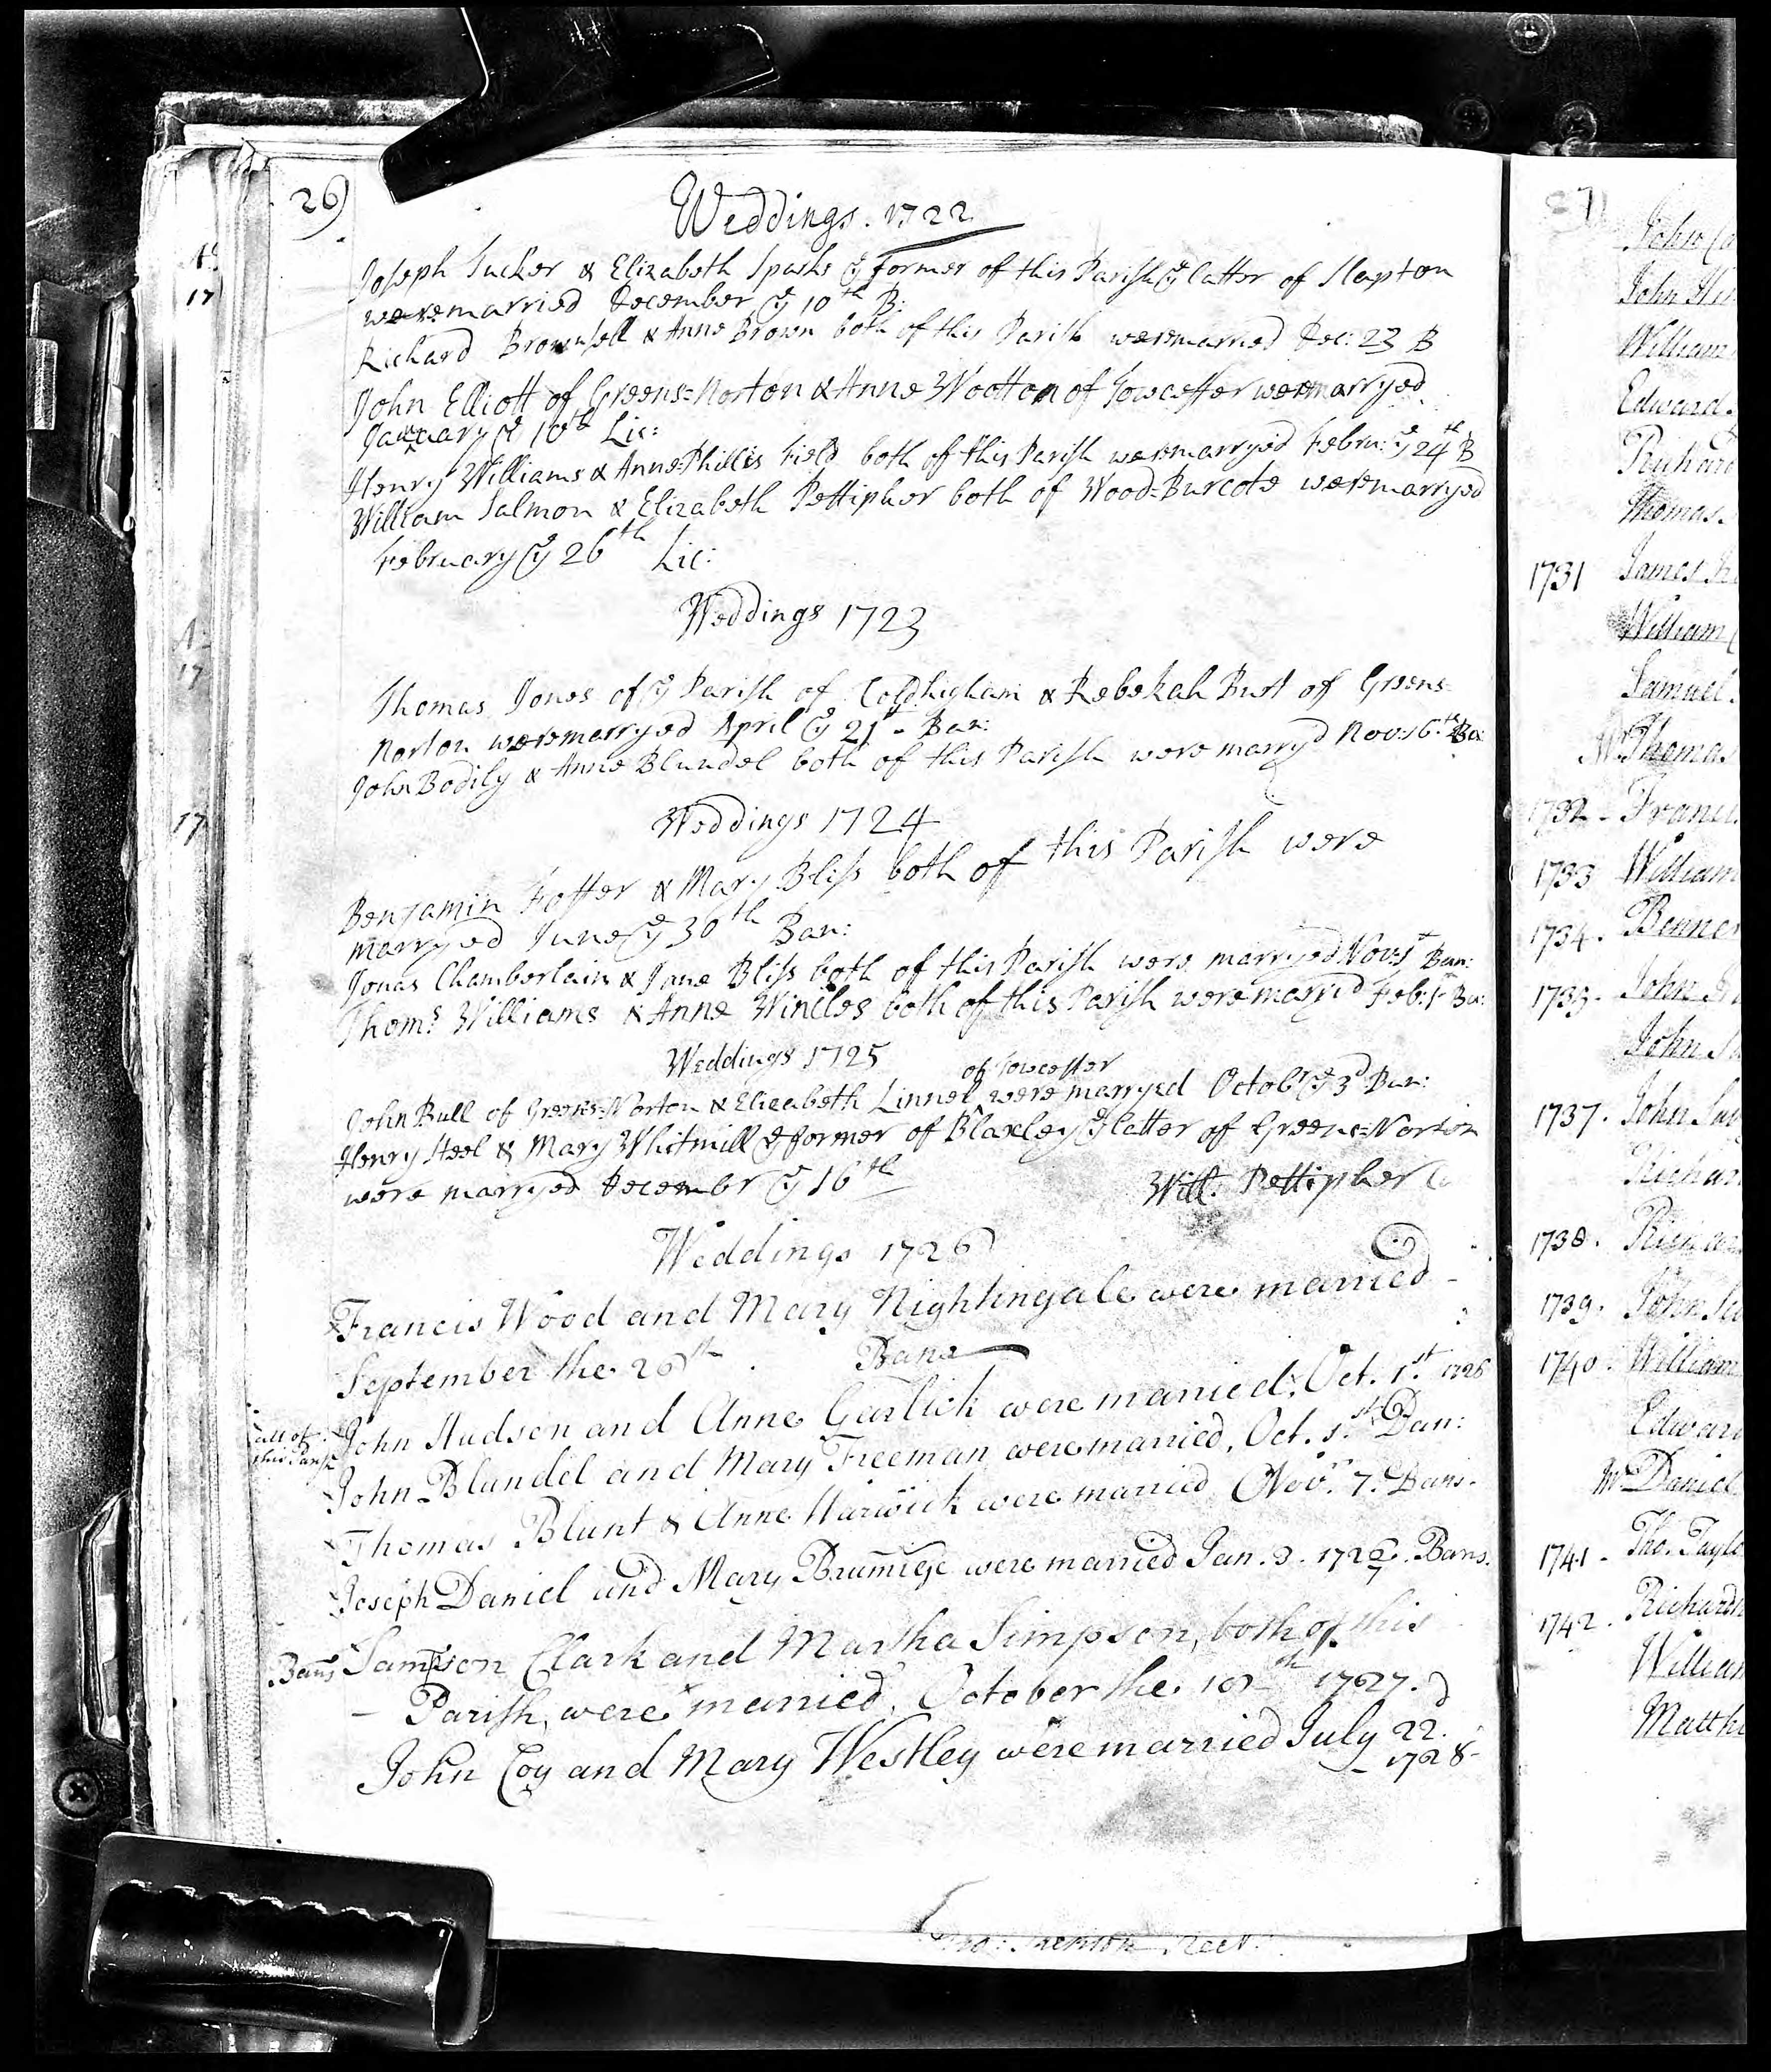 26)
Weddings. 1722
Joseph Tucker & Elizabeth Sparks ye former of this Parish ye latter of Slapton
were married December ye 10th B:
Richard Brownsell & Anne Brown both of this Parish were married Dec: 23 B
John Elliott of Greens=Norton & Anne Wootton of Towcester were marryed
January ye 10th Lic:
Henry Williams & Anne=Phillis Field both of this Parish were marryed Febru: ye 24th B
William Salmon & Elizabeth Pettipher both of Wood=Burcote were marryed
February ye 26th Lic:
Weddings 1723
Thomas Jones of ye Parish of Coldhigham & Rebekah Burt of Greens=
Norton were marryed April ye 21st - Ban:
John Bodily & Anne Blundel both of this Parish were marryd Nov: 16th Ba:
Weddings 1724
Benjamin Foster & Mary Bliss both of this Parish were
marryed June ye 30th Ban:
Jonas Chamberlain & Jane Bliss both of this Parish were marryed Nov: 1st Ban:
Thoms Williams & Anne Wincles both of this Parish were marryd Feb: 1st Ba:
Weddings 1725
of Towcester
John Bull of Greens=Norton & Elizabeth Linnel were marryed Octobr ye 3d Ban:
Henry Steel & Mary Whitmill ye former of Blaxley ye latter of Greens=Norton
were marryed Decembr ye 16th
Will: Pettipher
Weddings 1726
Francis Wood and Mary Nightingale were married -
September the 26th. Bans
John Hudson and Anne Garlick were married, Oct. 1st. 1726
all of
this Parish
John Blundel and Mary Freeman were married, Oct. 1st. Ban:
Thomas Blunt & Anne Warwick were married Novr. 7. Bans.
Joseph Daniel and Mary were married Jan. 3. 1726/7. Bans.
Bans Sampson Clark and Martha Simpson, both of this
- Parish, were married, October the 1727.
John Coy and Mary Westley were married July 22.
1728-
John
John
William
Edward.
Richard
Thomas.
1731 James
William
Samuel.
Mr Thomas
1732 -
1733 William
1734.
John
John
1737. John
1738.
1739. John
1740. William
Edward
Mr Daniel
1741 - Tho.
1742.